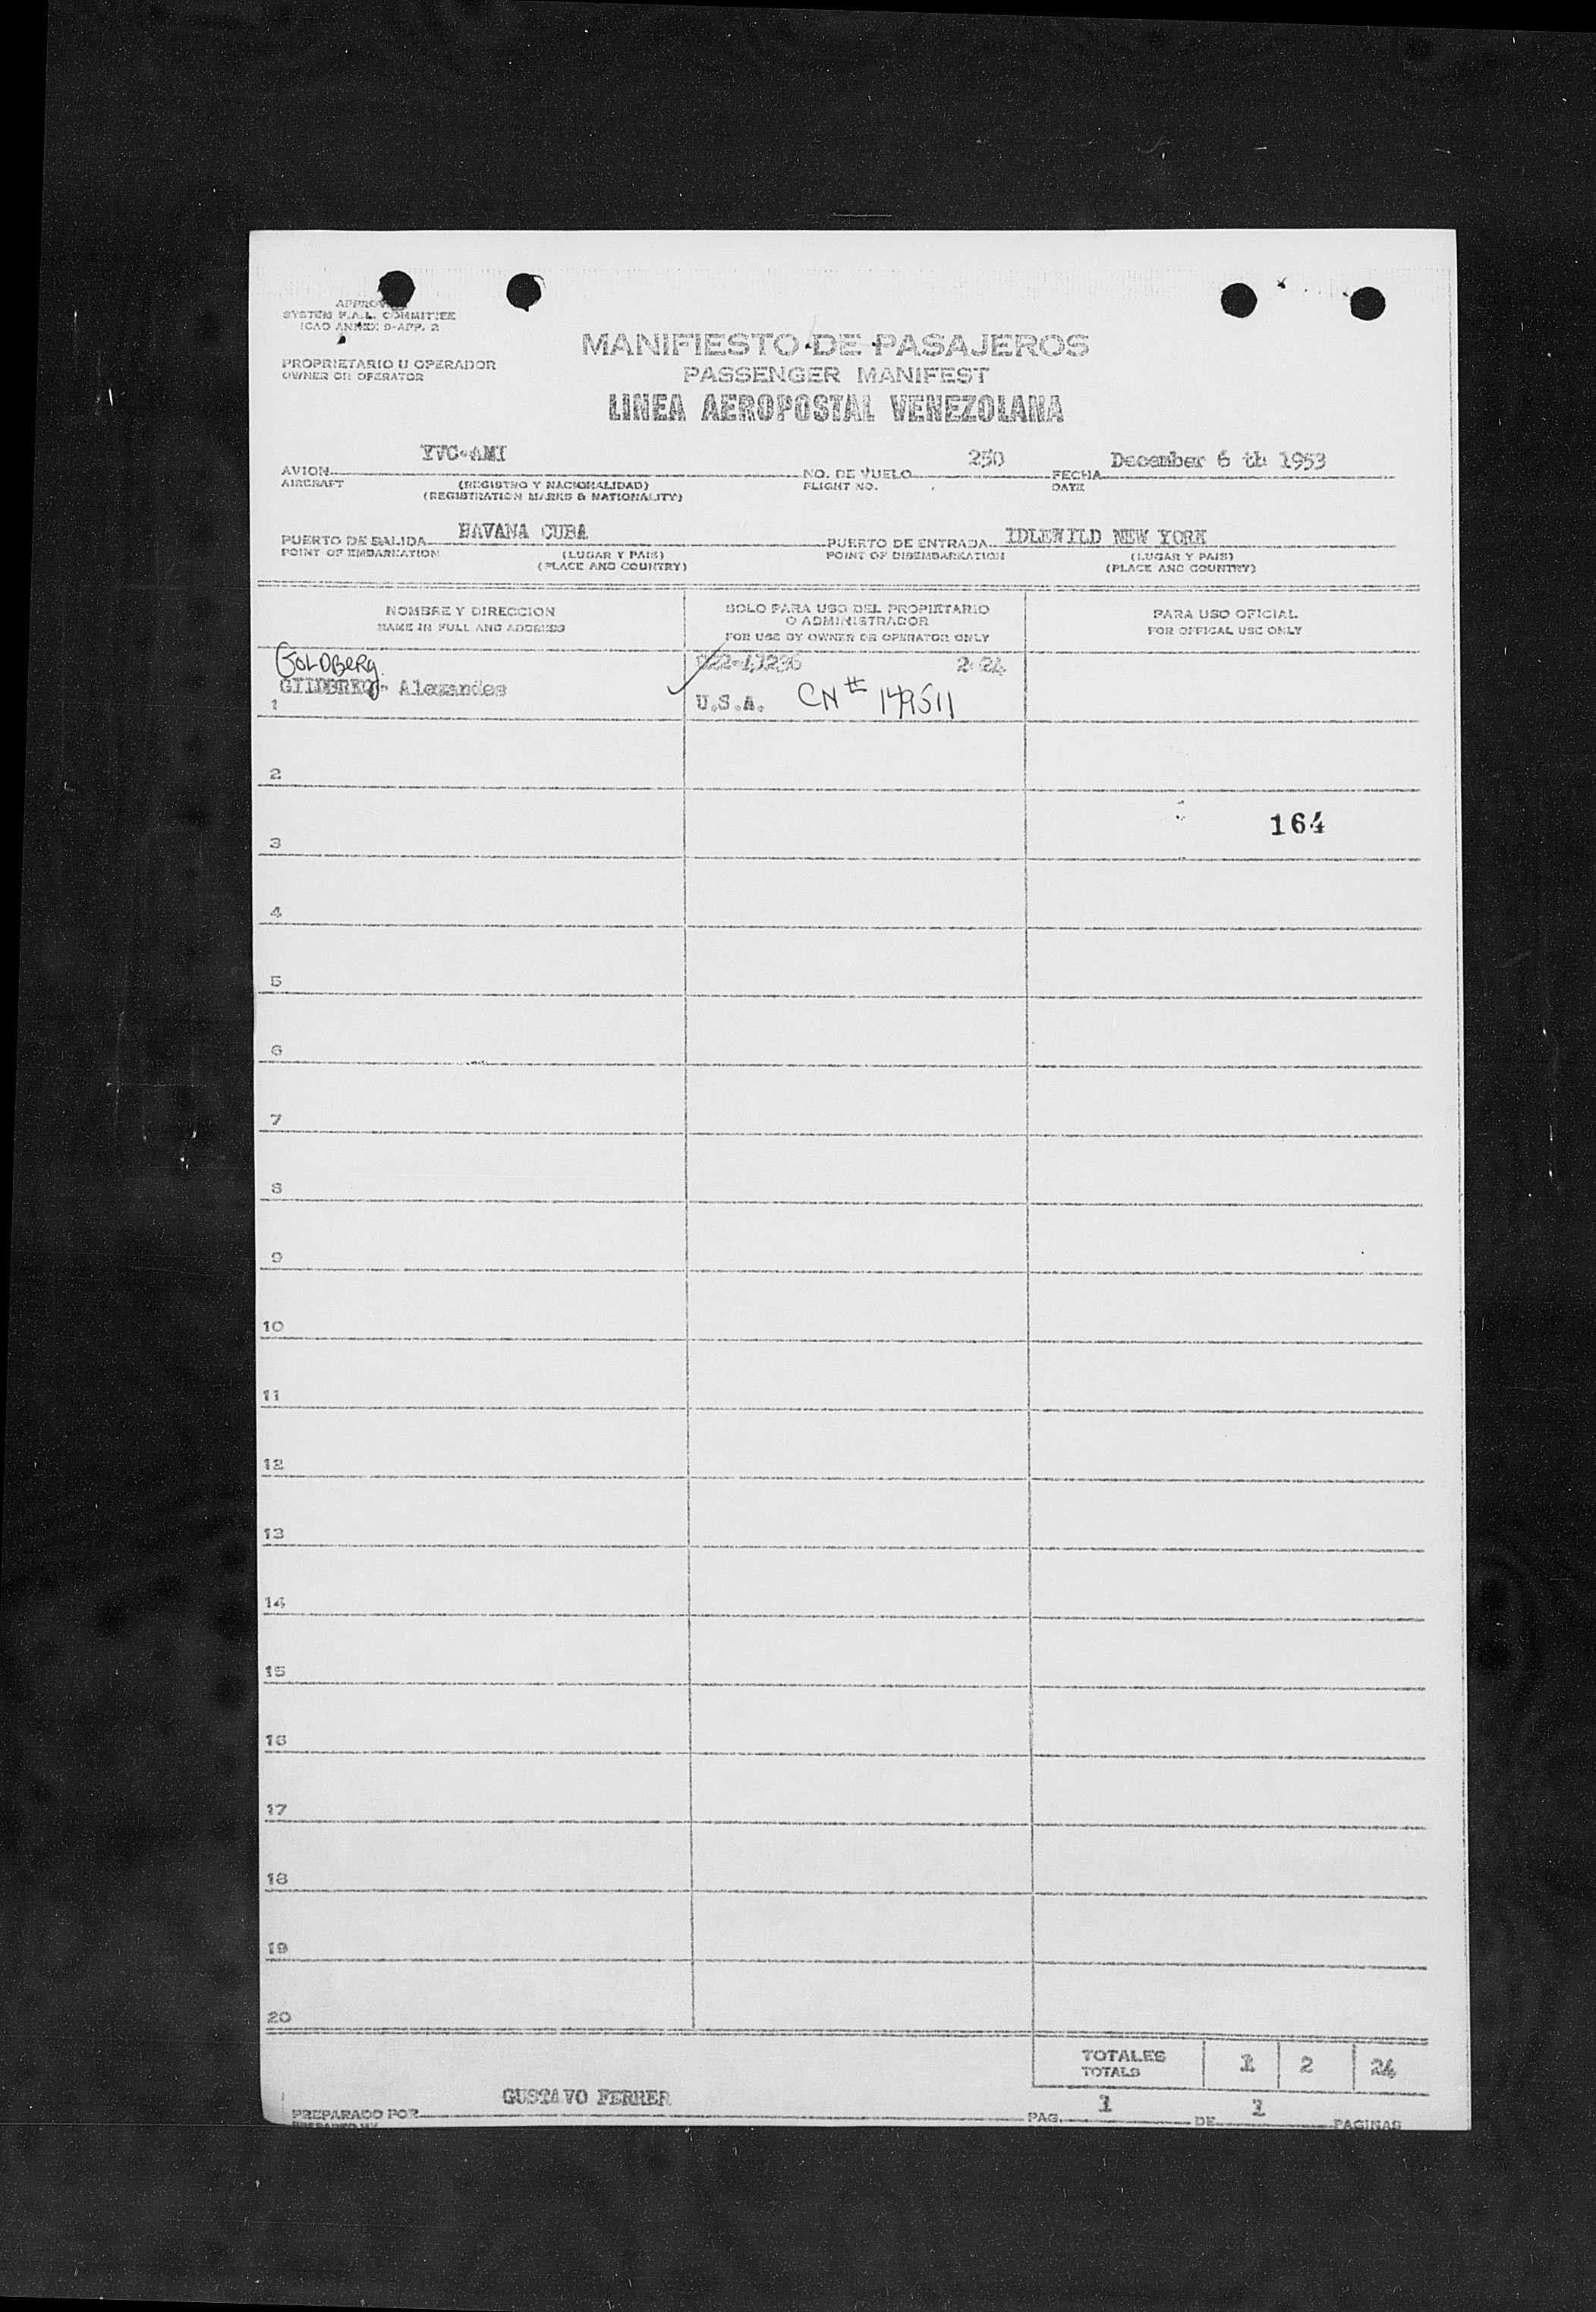 APPROVED
SYSTEM F.A.L. COMMITTEE
ICAO ANNEX 9-APP. 2
PROPRIETARIO U OPERADOR
OWNER OR OPERATOR
MANIFIESTO DE PASAJEROS
PASSENGER MANIFEST
LINEA AEROPOSTAL VENEZOLANA
AVION YVC-AMI NO. DE VUELO 250 FECHA December 6 th 1953
AIRCRAFT (REGISTRO Y NACIONALIDAD) FLIGHT NO. DATE
(REGISTRATION MARKS & NATIONALITY)
PUERTO DE SALIDA HAVANA CUBA PUERTO DE ENTRADA IDLEWILD NEW YORK
POINT OF EMBARKATION (LUGAR Y PAIS) POINT OF DISEMBARKATION (LUGAR Y PAIS)
(PLACE AND COUNTRY) (PLACE AND COUNTRY)
NOMBRE Y DIRECCION SOLO PARA USO DEL PROPIETARIO PARA USO OFICIAL
NAME IN FULL AND ADDRESS O ADMINISTRADOR FOR OFFICAL USE ONLY
FOR USE BY OWNER OR OPERATOR ONLY
GOLDBerg 022-41236 2 24
Alexander
1 U.S.A. CN# 149511
2
164
3
4
5
6
7
8
9
10
11
12
13
14
15
16
17
18
19
20
TOTALES 1 2 24
TOTALS
PREPARADO POR GUSTAVO FERRER PAG. 1 DE 1 PAGINAS
PREPARED BY